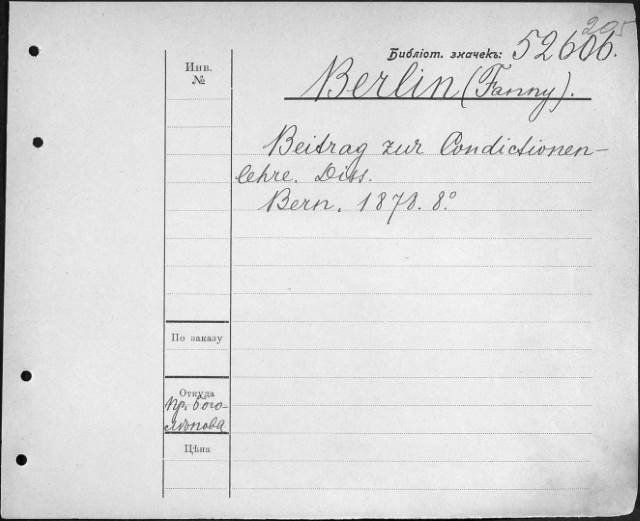 205
Библіот. значекъ: 52606.
Инв.
№
Berlin (Fanny).
Beitrag zur Condictionen-
lehre. Diss.
Bern. 1878. 8°
По заказу
Откуда
Пр. Бого-
лѣпова
Цѣна